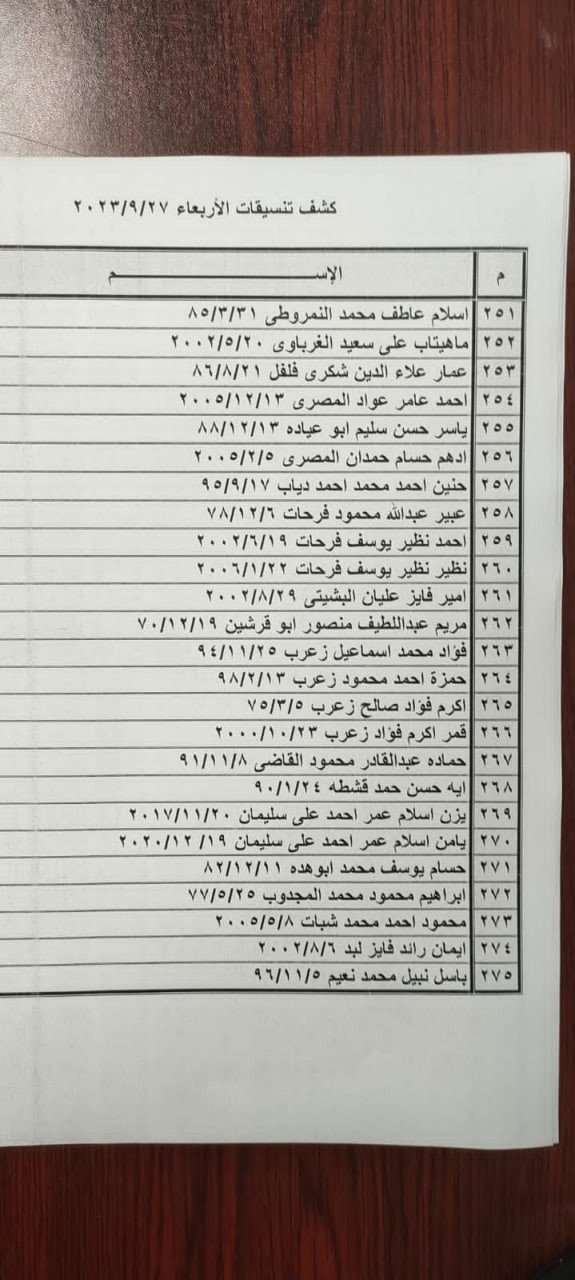 كشف تنسيقات الأربعاء ٢٠٢٣/٩/٢٧
م الإســـــــــــــم
٢٥١ اسلام عاطف محمد النمروطى ٨٥/٣/٣١
٢٥٢ ماهيتاب على سعيد الغرباوى ٢٠٠٢/٥/٢٠
٢٥٣ عمار علاء الدين شكرى فلفل ٨٦/٨/٢١
٢٥٤ احمد عامر عواد المصرى ٢٠٠٥/١٢/١٣
٢٥٥ ياسر حسن سليم ابو عياده ٨٨/١٢/١٣
٢٥٦ ادهم حسام حمدان المصرى ٢٠٠٥/٢/٥
٢٥٧ حنين احمد محمد احمد دياب ٩٥/٩/١٧
٢٥٨ عبير عبدالله محمود فرحات ٧٨/١٢/٦
٢٥٩ احمد نظير يوسف فرحات ٢٠٠٢/٦/١٩
٢٦٠ نظير نظير يوسف فرحات ٢٠٠٦/١/٢٢
٢٦١ امير فايز عليان البشيتى ٢٠٠٢/٨/٢٩
٢٦٢ مريم عبداللطيف منصور ابو قرشين ٧٠/١٢/١٩
٢٦٣ فؤاد محمد اسماعيل زعرب ٩٤/١١/٢٥
٢٦٤ حمزة احمد محمود زعرب ٩٨/٢/١٣
٢٦٥ اكرم فؤاد صالح زعرب ٧٥/٣/٥
٢٦٦ قمر اكرم فؤاد زعرب ٢٠٠٠/١٠/٢٣
٢٦٧ حماده عبدالقادر محمود القاضى ٩١/١١/٨
٢٦٨ ايه حسن حمد قشطه ٩٠/١/٢٤
٢٦٩ يزن اسلام عمر احمد على سليمان ٢٠١٧/١١/٢٠
٢٧٠ يامن اسلام عمر احمد على سليمان ٢٠٢٠/١٢/١٩
٢٧١ حسام يوسف محمد ابوهده ٨٢/١٢/١١
٢٧٢ ابراهيم محمود محمد المجدوب ٧٧/٥/٢٥
٢٧٣ محمود احمد محمد شبات ٢٠٠٥/٥/٨
٢٧٤ ايمان رائد فايز لبد ٢٠٠٢/٨/٦
٢٧٥ باسل نبيل محمد نعيم ٩٦/١١/٥